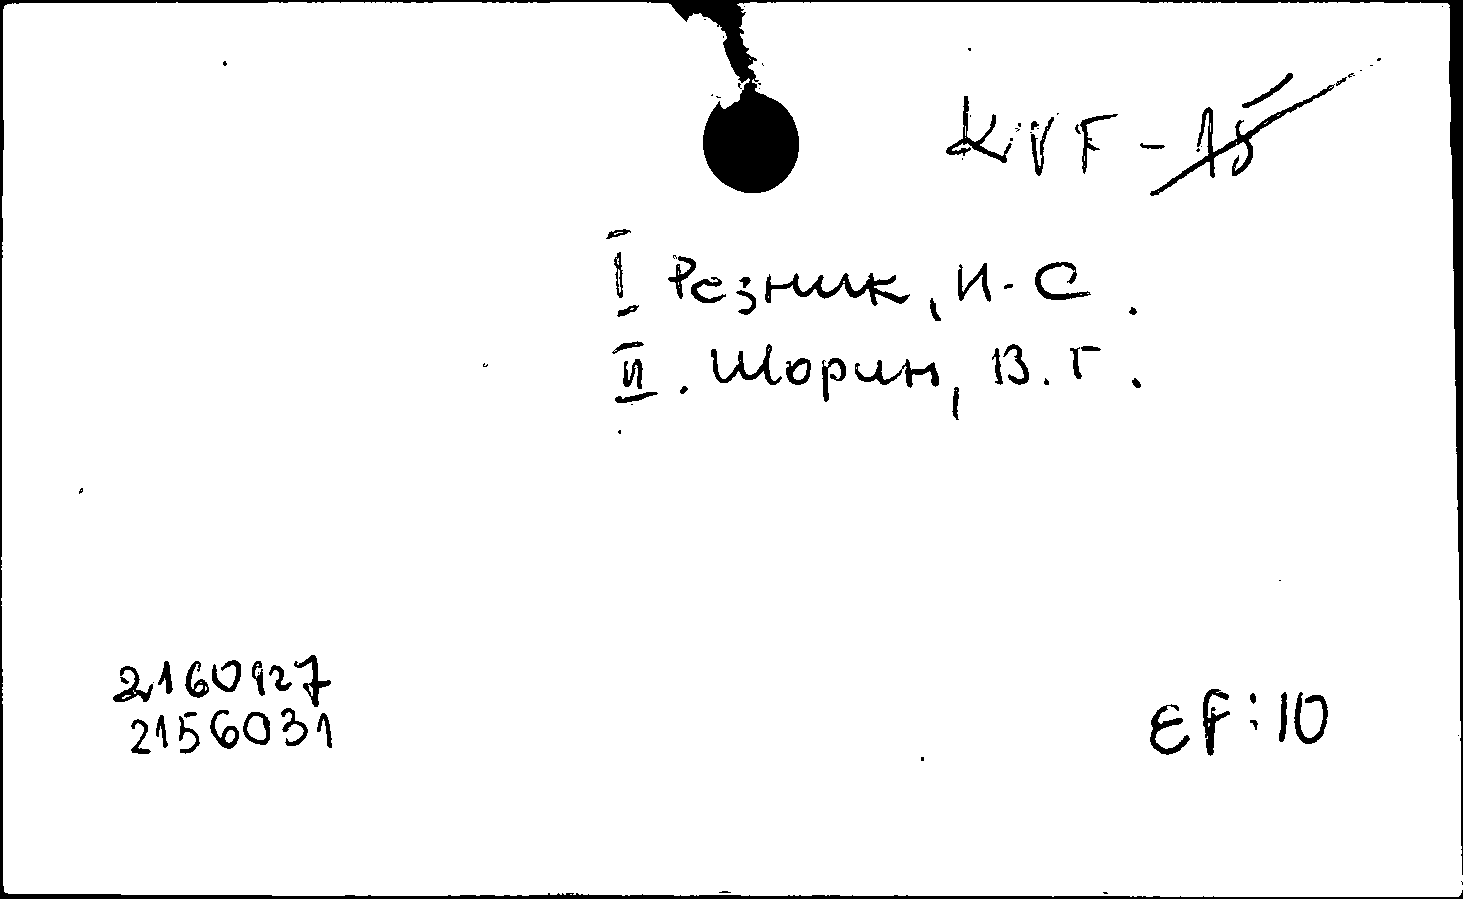 KVF - 15
I Резник, И. С.
II. Шорин, В. Г.
2160927
2156031
EF: 10